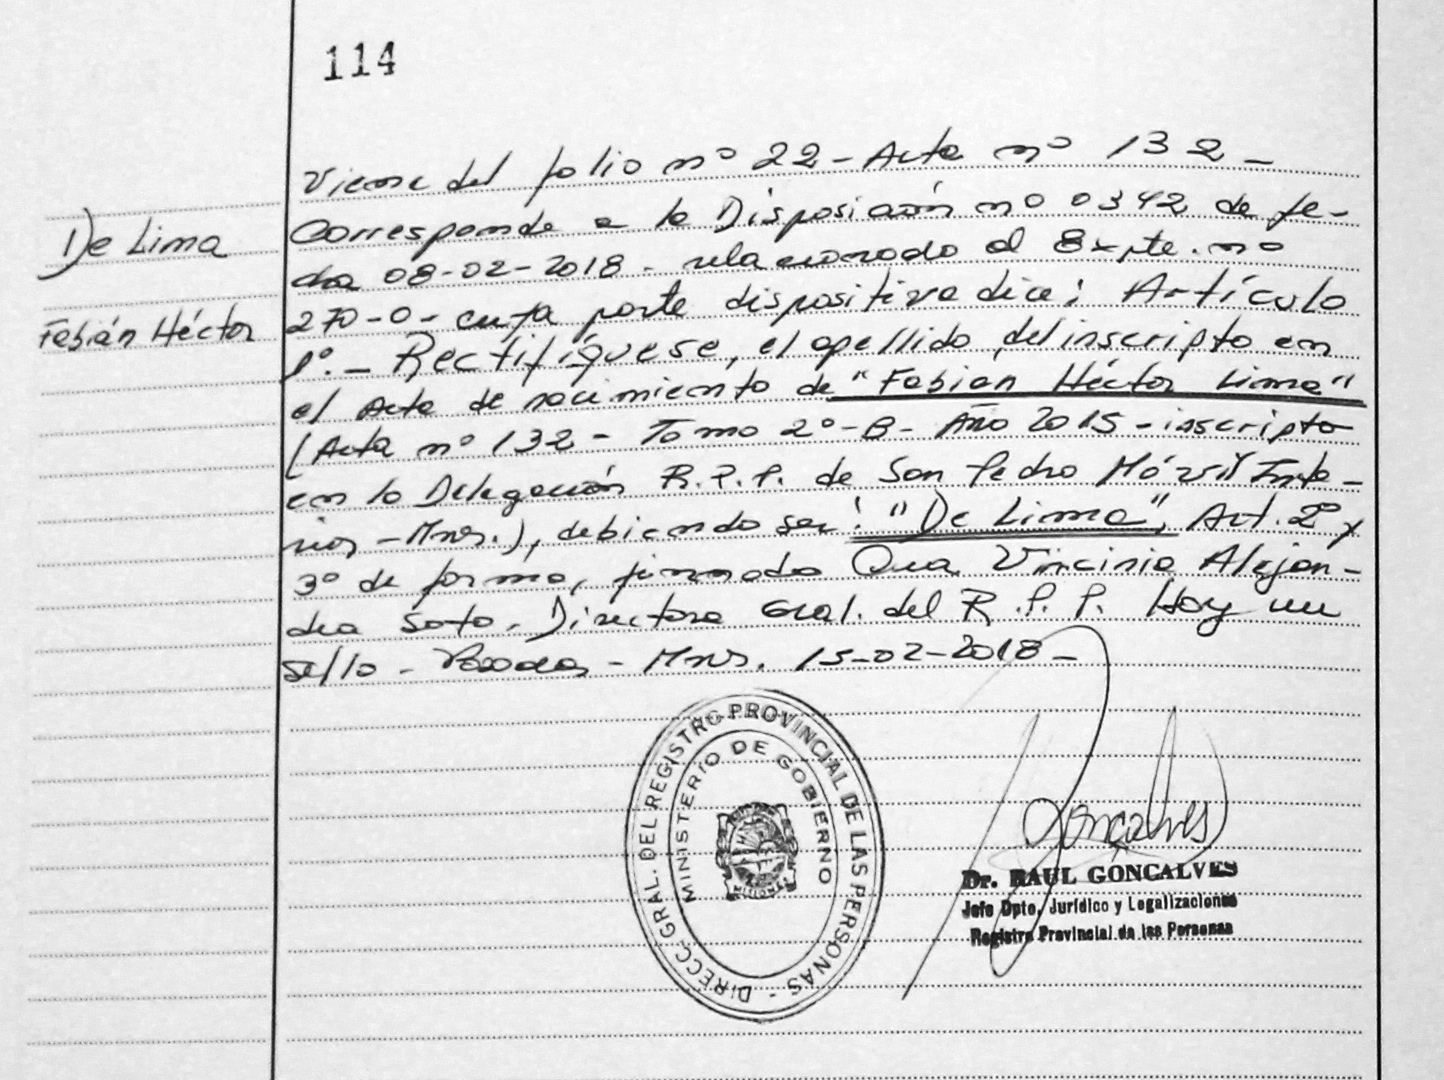 114
Viene del folio nº 22 - Acta nº 132 -
De Lima
Fabián Héctor
Corresponde a la Disposición nº 0342 de fe-
cha 08-02-2018 - relacionado al Expte. nº
270-0- cuya parte dispositiva dice: Artículo
1º.- Rectifíquese, el apellido del inscripto en
el Acta de nacimiento de "Fabian Héctor Lima"
(Acta nº 132 - Tomo 2º-B- Año 2015 - inscripto
en la Delegación R.P.P. de San Pedro Móvil Inte-
rior - Mnes.), debiendo ser: "De Lima", Art. 2º y
3º de forma, firmado Dra. Vincinia Alejan-
dra Soto. Directora Gral. del R.P.P. Hay un
sello - Posadas - Mnes. 15-02-2018 -
DIRECC. GRAL. DEL REGISTRO PROVINCIAL DE LAS PERSONAS -
MINISTERIO DE GOBIERNO
MISIONES
Gonçalves
Dr. RAUL GONÇALVES
Jefe Dpto. Jurídico y Legalizaciones
Registro Provincial de las Personas